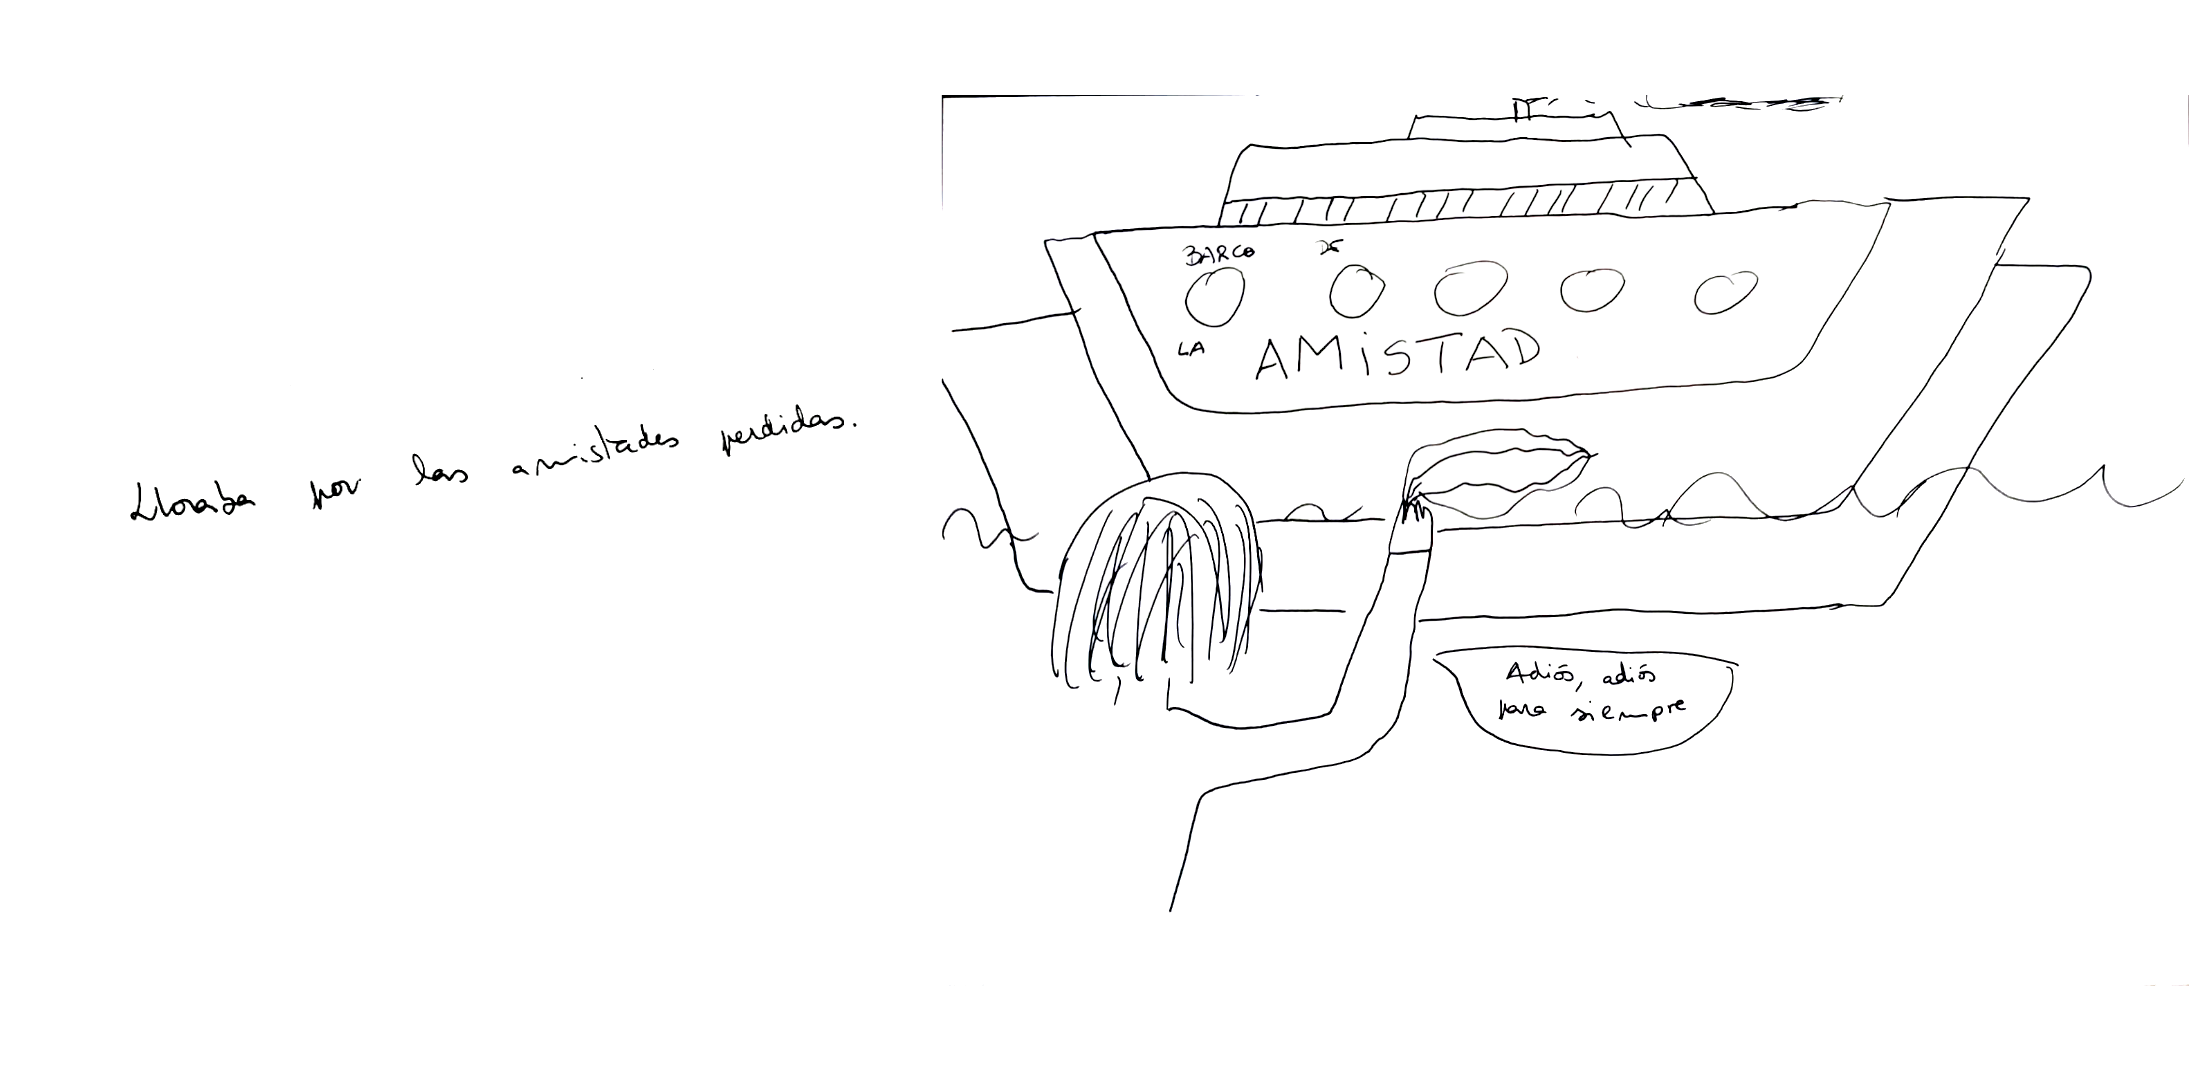 Lloraba por las amistades perdidas.
BARCO DE
LA AMiSTAD
Adiós, adiós
para siempre